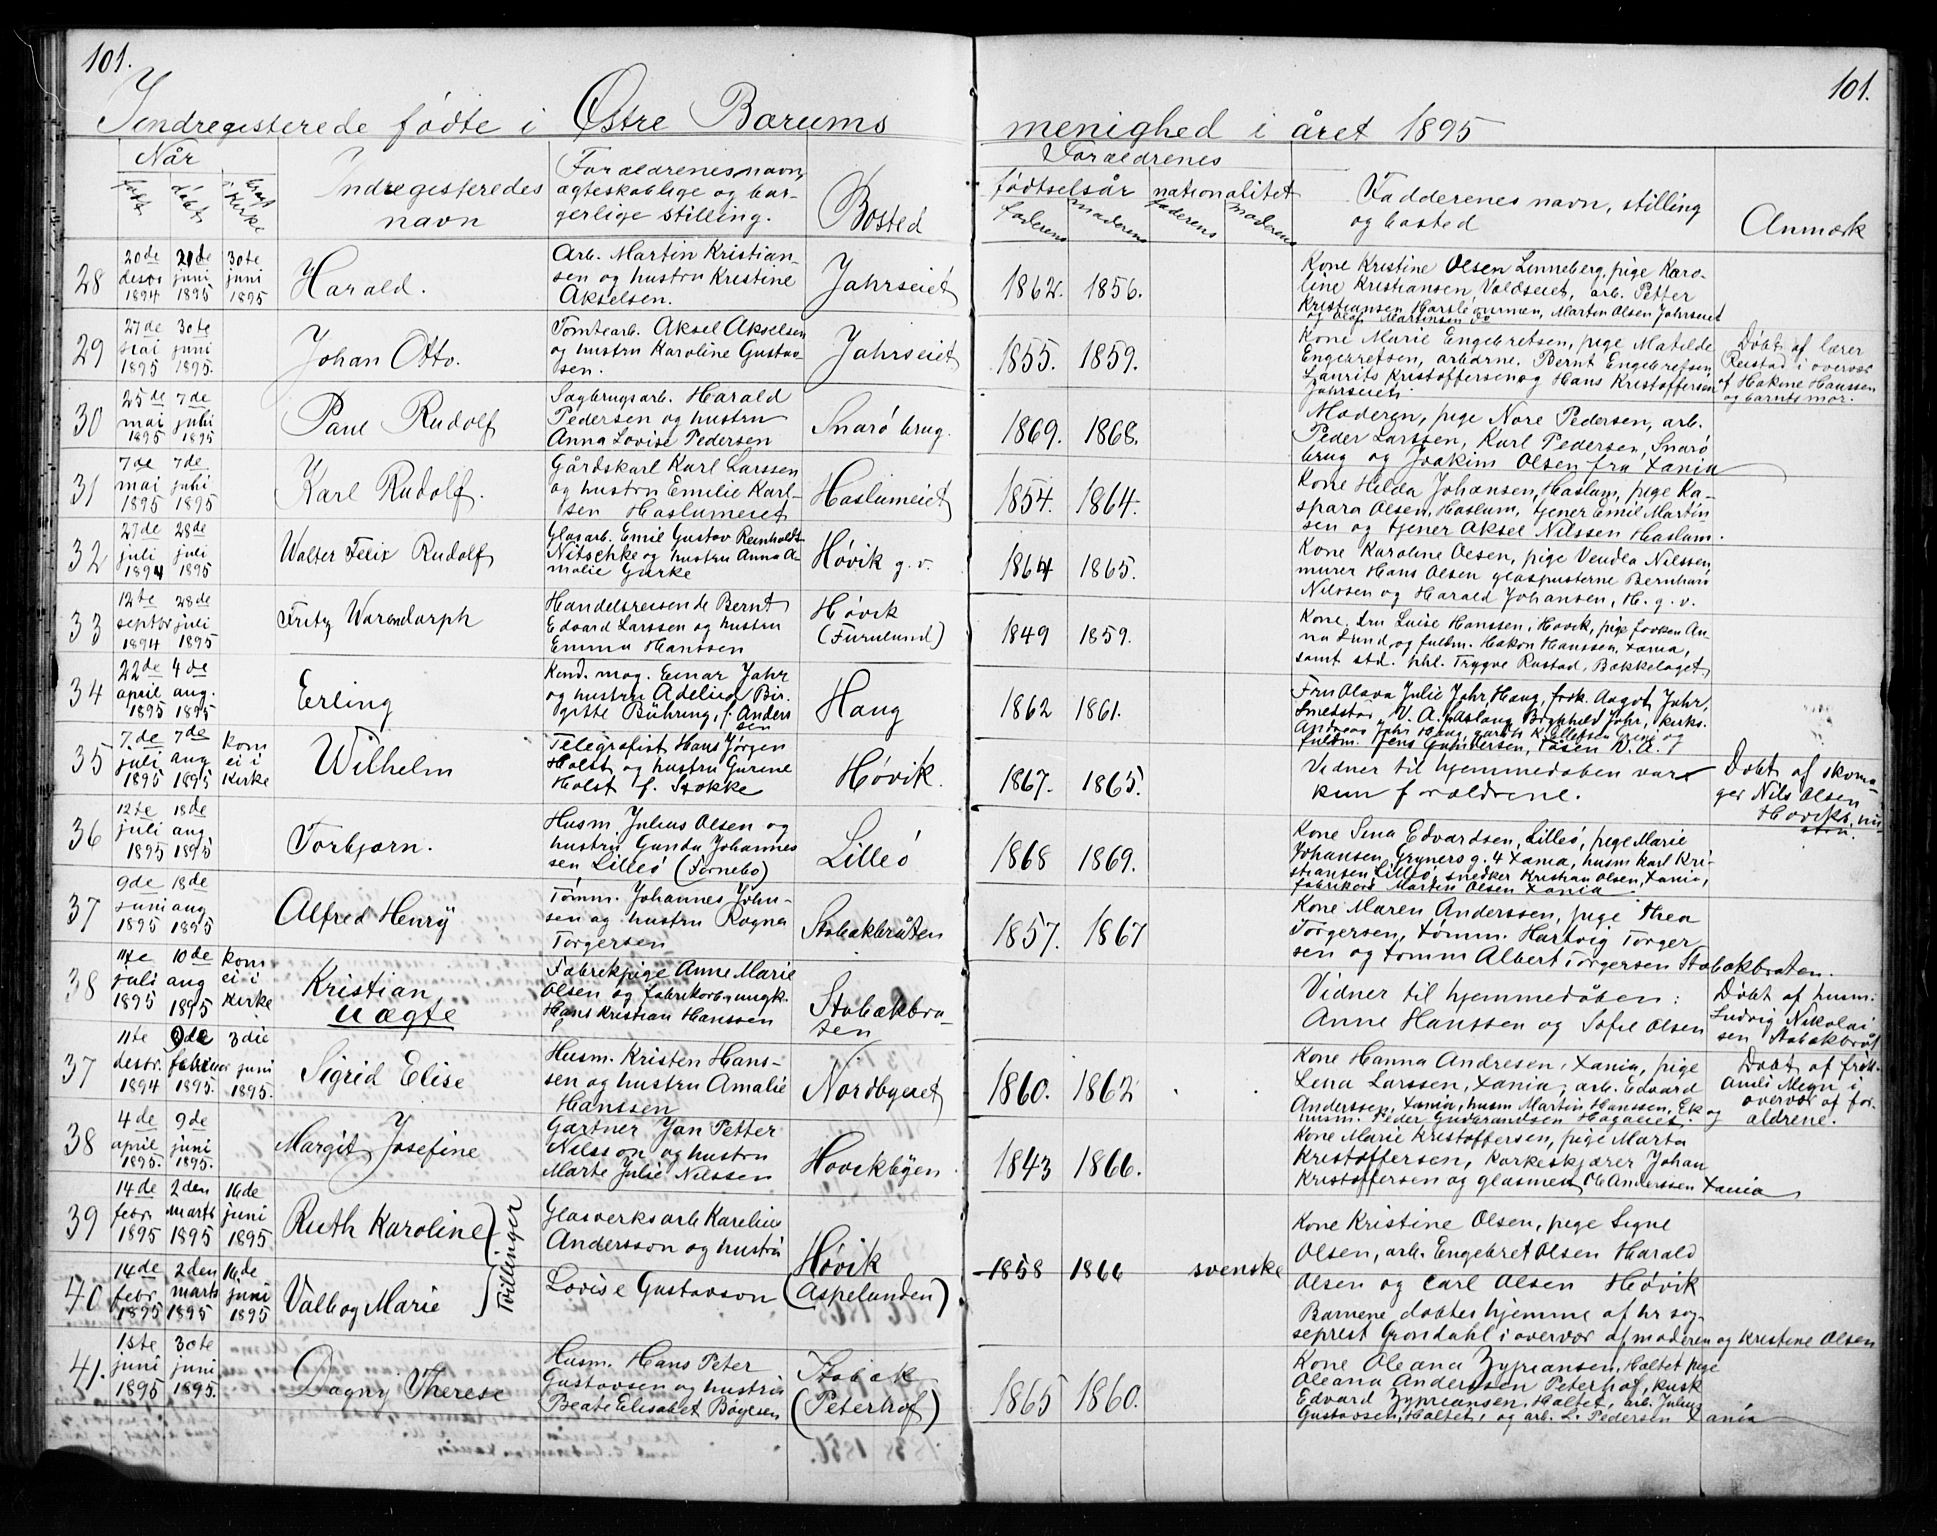 101.
101.
Indregisterede fødte i Østre Bærums menighed i året 1895
Når
født
døbt
bragt i kirke
Indregisteredes navn
Forældrenes navn,
ægteskablige og bor-
gerlige stilling.
Bosted
Forældrenes
fødtselsår
nationalitet
faderens
moderens
faderens
moderens
Faddernes navn, stilling
og bosted
Anmærk
28
20de desbr 1894
21de juni 1895
30te juni 1895
Harald.
Arb. Martin Kristian-
sen og hustru Kristine
Akselsen.
Jahrseiet
1862. 1856.
Kone Kristine Olsen Linneberg, pige Karo-
line Kristiansen, Voldseiet, arb. Petter
Kristiansen Harsleøurmæn, Martin Olsen Jahrseiet
og Olaf Martinsen do
29
27de mai 1895
30te juni 1895.
Johan Otto.
Tomtearb. Aksel Akselsen
og hustru Karoline Gustav-
sen.
Jahrseiet
1855. 1859.
Kone Marie Engebretsen, pige Matilde
Engebretsen, arbderne. Bernt Engebretsen
Laurits Kristoffersen og Hans Kristoffersen
Jahrseiet.
Døbt af lærer
Rustad i overvær
af Hakine Hanssen
og barnets mor.
30
25de mai 1895
7de juli 1895
Paul Rudolf
Sagbrugsarb. Harald
Pedersen og hustru
Anna Lovise Pedersen
Snarø brug.
1869. 1868.
Moderen, pige Nore Pedersen, arb.
Peder Larssen, Karl Pedersen, Snarø
brug og Joakim Olsen fra Xania
31
7de mai 1895
7de juli 1895
Karl Rudolf.
Gårdskarl Karl Larssen
og hustru Emilie Karl-
sen Haslumeiet
Haslumeiet
1854. 1864.
Kone Hilda Johansen, Haslum, pige Ka-
spara Olsen, Haslum, tjener Emil Martin
sen og tjener Aksel Nilssen Haslum.
32
27de juli 1894
28de juli 1895
Walter Felix Rudolf
Glasarb. Emil Gustav Reinholdt
Nitschke og hustru Anna A-
malie Gurke
Høvik g. v.
1864 1865.
Kone Karoline Olsen, pige Vendla Nilssen,
murer Hans Olsen glaspusterne Bernhard
Nilssen og Harald Johansen, H. g. v.
33
12te septbr 1894
28de juli 1895
Fritz Warendorph
Handelsreisende Bernt
Edvard Larssen og hustru
Emma Hanssen
Høvik
(Furulund)
1849 1859.
Kone fru Luise Hanssen, Høvik, pige frøken An-
na Lund og fuldm. Hakon Hanssen, Xania,
samt std. phl. Trygve Rustad, Bækkelaget
34
22de april 1895
4de aug. 1895
Erling
Kand. mag. Einar Jahr
og hustru Adelisa Bir-
gitte Bühring, f. Anders
sen
Haug
1862 1861.
Fru Olava Julie Jahr, Haug, frøk. Aagot Jahr,
Smedstad, V. A., Borghild Jahr, kirks.
Andreas Jahr Haug, og
fuldm. Jens Gundersen, Tåsen V. A.
35
7de juli 1895
7de aug 1895
kom ei i kirke
Wilhelm
Telegrafist Hans Jørgen
Holst og hustru Gurine
Holst f. Stokke
Høvik.
1867. 1865.
Vidner til hjemmedåben var
kun forældrene.
Døbt af skoma-
ger Nils Olsen
Høvikb. ni-
stru.
36
12te juli 1895
18de aug, 1895
Torbjørn.
Husm. Julius Olsen og
hustru Gunda Johannes
sen Lilleø (Fornebo)
Lilleø
1868 1869.
Kone Sina Edvardsen, Lilleø, pige Marie
Johansen, Gryners g. 4 Xania, husm Karl Kri-
stiansen Lilleø, snedker Kristian Olsen, Xania,
fabrikarb Martin Olsen Xania
37
9de juni 1895
18de aug 1895
Alfred Henrÿ
Tømm. Johannes John-
sen og hustru Rogna
Torgersen
Stabækbråten
1857. 1867
Kone Maren Anderssen, pige Thea
Torgersen, tømm. Hartvig Torger
sen og tomm Albert Torgersen Stabækbråten.
38
11te juli 1895
10de aug 1895
kom ei i kirke
Kristian
uægte
Fabrikpige Anne Marie
Olsen og fabrikarb ungk.
Hans Kristian Hanssen
Stabækbra-
ten
Vidner til hjemmedåben:
Anne Hanssen og Sofie Olsen
Døbt af husm:
Ludvig Nikolai
sen Stabækbråt
37
11te desbr. 1894
3de februar 1895.
3die juni 1895.
Sigrid Elise
Husm. Kristen Hans-
sen og hustru Amalie
Hanssen
Nordbyeiet
1860. 1862
Kone Hanna Andresen, Xania, pige
Lena Larssen, Xania, arb. Edvard
Anderssen, Xania, husm Martin Hanssen, Ek og
husm. Peder Gulbrandsen Hagaeiet.
Døbt af frøk.
Amli Megn i
overvær af for-
ældrene.
38
4de april 1895.
9de juni 1895.
Margit Josefine
Gartner Jan Petter
Nilsson og hustru
Marte Julie Nilssen
Høvikbÿen.
1843 1866.
Kone Marie Kristoffersen, pige Marta
Kristoffersen, korkeskjærer Johan
Kristoffersen og glasmest. Anderssen Xania
39
14de febr 1895
2den marts 1895
16de juni 1895
Ruth Karoline
Tvillinger
Glasverksarb Karelius
Andersson og hustru
Høvik
40
14de febr 1895
2den marts 1895
16de juni 1895
Valbog Marie
Lovise Gustavson
(Aspelunden)
1858 1866 svenske
Kone Kristine Olsen, pige Signe
Olsen, arb. Engebret Olsen Harald
Olsen og Carl Olsen Høvik
Barnene døbtes hjemme af hr sog-
neprest Grøndahl i overvær af moderen og Kristine Olsen
41.
1ste juni 1895
30te juni 1895.
Dagny Therese
Husm. Hans Peter
Gustavsen og hustru
Beate Elisabet Bøgesen
Stabæk
(Peterhof)
1865 1860.
Kone Oleana Zypriansen, Holtet pige
Oleana Anderssen Peterhof, kusk
Edvard Zypriansen, Holtet, arb. Julius
Gustavsen, Holtet, og arb. L. Pedersen Xania